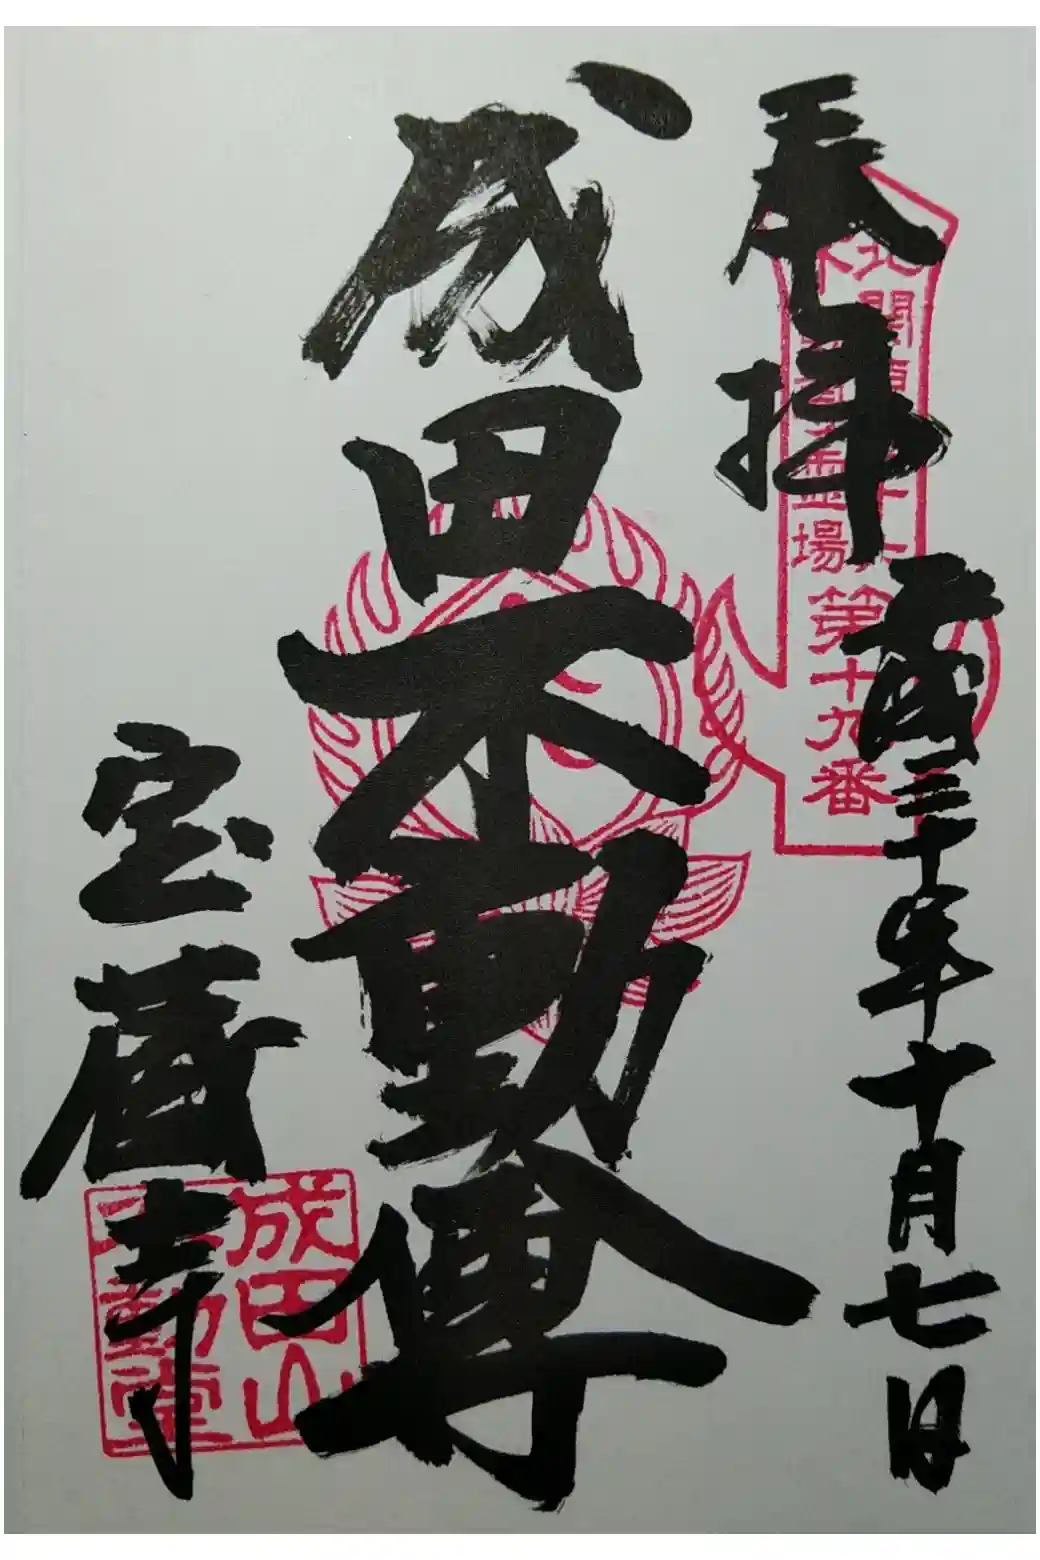 奉拝
平成三十年十月七日
北関東三十六
不動尊霊場
第十九番
成田不動尊
宝蔵寺
成田山
不動堂